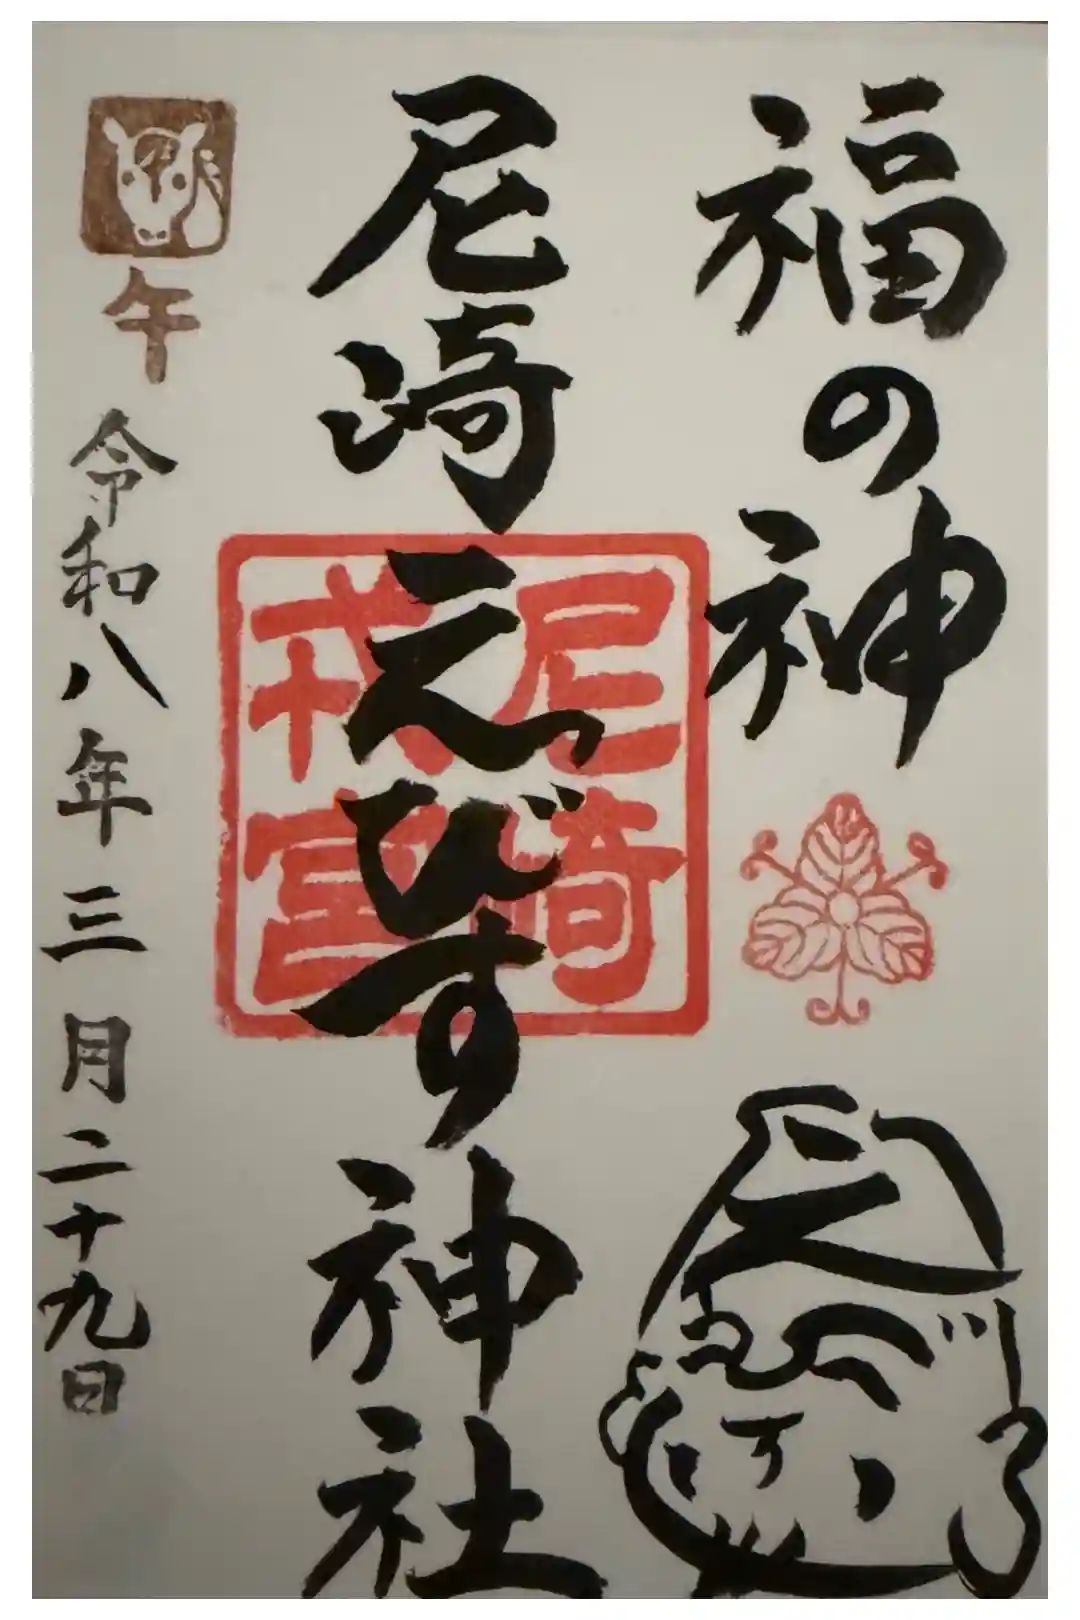 福の神
尼崎えびす神社
尼崎
戎宮
午
令和八年三月二十九日